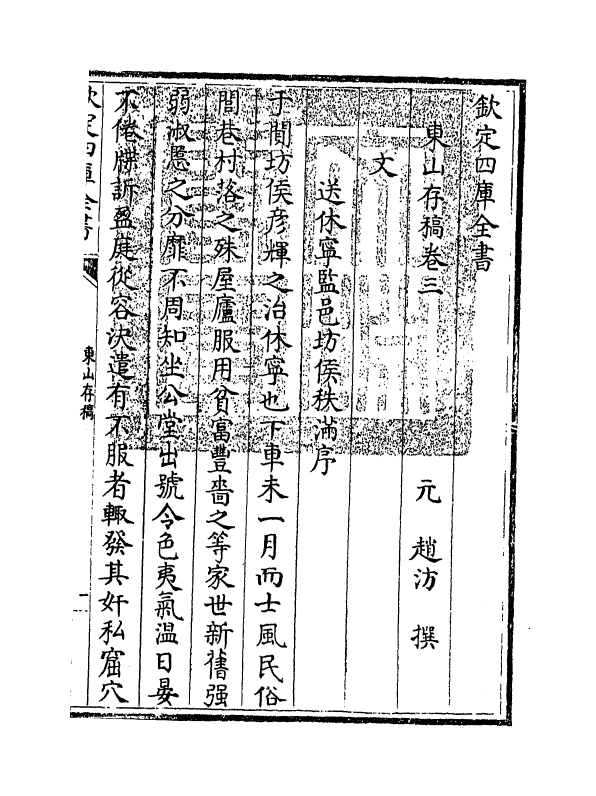 欽定四庫全書
東山存稿卷三
元　趙汸　撰
文
送休寧監邑坊侯秩滿序
于闐坊侯彦輝之治休寧也下車未一月而士風民俗
閭巷村落之殊屋廬服用貧富豐嗇之等家世新舊强
弱淑慝之分靡不周知坐公堂出號令色夷氣温日晏
不倦牒訴盈庭從容決遣有不服者輙發其奸私窟穴
欽定四庫全書
東山存稿
一